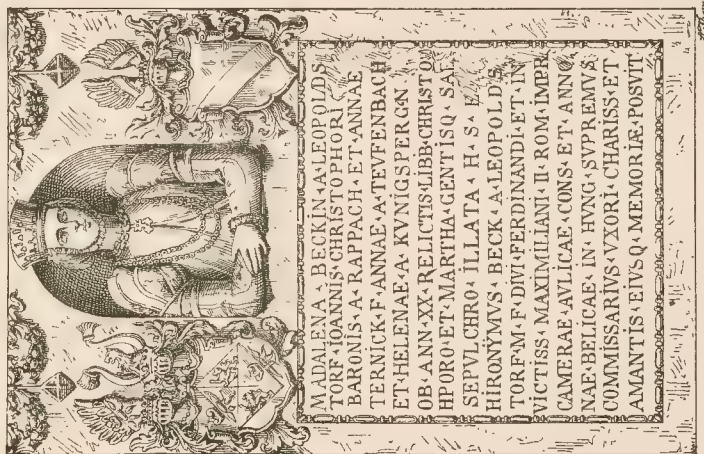 MADALENA · BECKIN · A · LEOPOLDS
TORF · IOANNIS · CHRISTOPHORI
BARONIS · A · RAPPACH · ET · ANNAE
TERNICK · F · ANNAE · A · TEVFENBACH
ET · HELENAE · A · KVNIGSPERG · N
OB · ANN · XX · RELICTIS · LIBB · CHRISTO
HPORO · ET · MARTHA · GENTISQ · SAE
SEPVLCHRO · ILLATA · H · S · E
HIRONYMVS · BECK · A · LEOPOLDS
TORF · M · F · DIVI · FERDINANDI · ET · IN
VICTISS · MAXIMILIANI · II · ROM · IMPR
CAMERAE · AVLICAE · CONS · ET · ANNO
NAE · BELICAE · IN · HVNG · SVPREMVS
COMMISSARIVS · VXORI · CHARISS · ET
AMANTIS · EIVSQ · MEMORIÆ · POSVIT